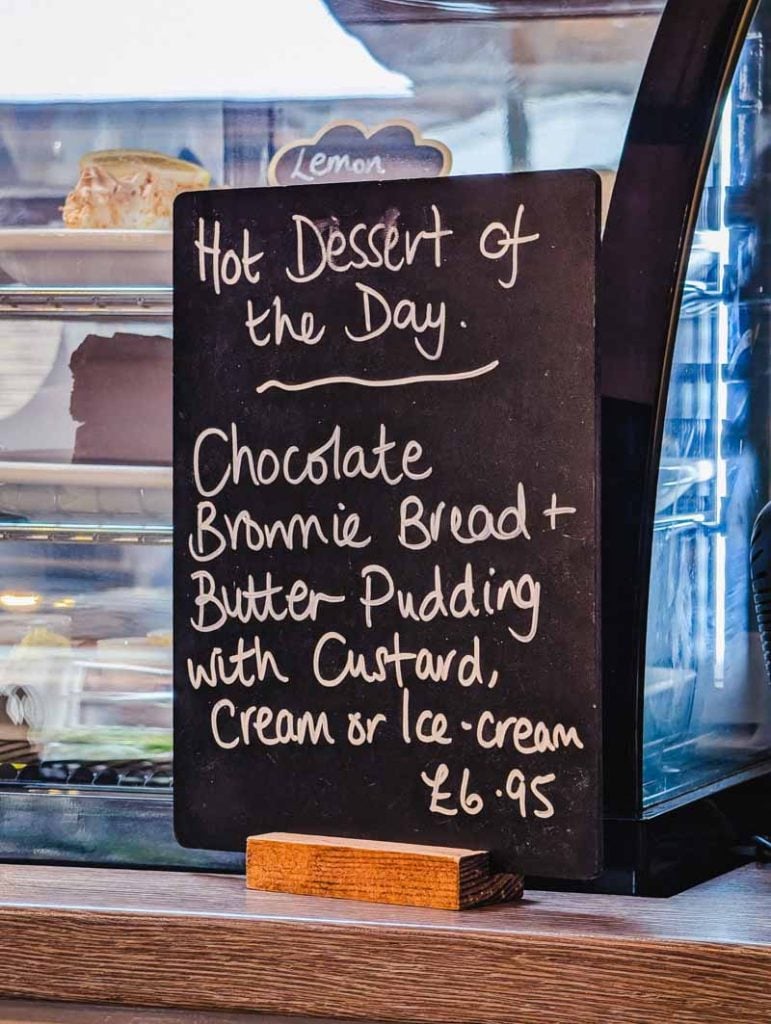 Lemon
Hot Dessert of
the Day.
Chocolate
Brownie Bread +
Butter Pudding
with Custard,
Cream or Ice-cream
£6.95